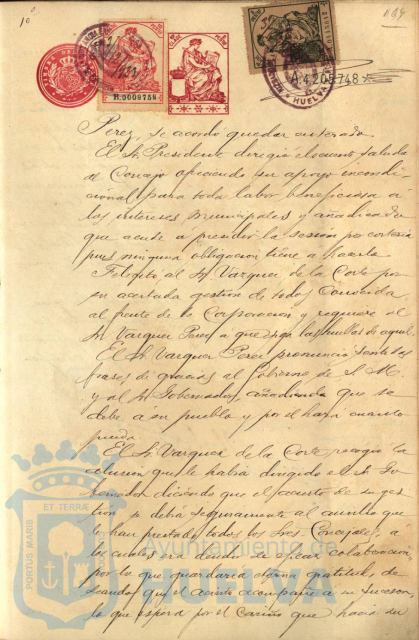 10
A.4205748
B.0009758
HUELVA
Perez, se acordó quedar enterado.
El Sr. Presidente dirigió elocuente saludo
al Concejo ofreciendo su apoyo incondi-
cional para toda labor beneficiosa a
los intereses municipales y añadiendo
que acude a presidir la sesión por cortesía
pues ninguna obligación tiene a hacerlo.
Felicitó al Sr. Vazquez de la Corte por
su acertada gestión de todos conocida
al frente de la Corporación y requiere al
Sr. Vazquez Perez a que siga las huellas de aquel.
El Sr. Vazquez Perez pronunció sentidas
frases de gracias al Gobierno de S. M.
y al Sr. Gobernador, añadiendo que se
debe a su pueblo y por él hará cuanto
pueda.
El Sr. Vazquez de la Corte recogió la
alusión que le había dirigido el Sr. Go-
bernador diciendo que el acierto de su ges-
tión se debía seguramente al auxilio que
le han prestado todos los Sres. Concejales, a
los cuales eficaz colaboración,
por lo que guardaría eterna gratitud, de-
seando que el acierto acompañe a su sucesor,
lo que espera por el cariño que hacia su
PORTUS MARIS
ET TERRAE
Ayuntamiento de
HUELVA